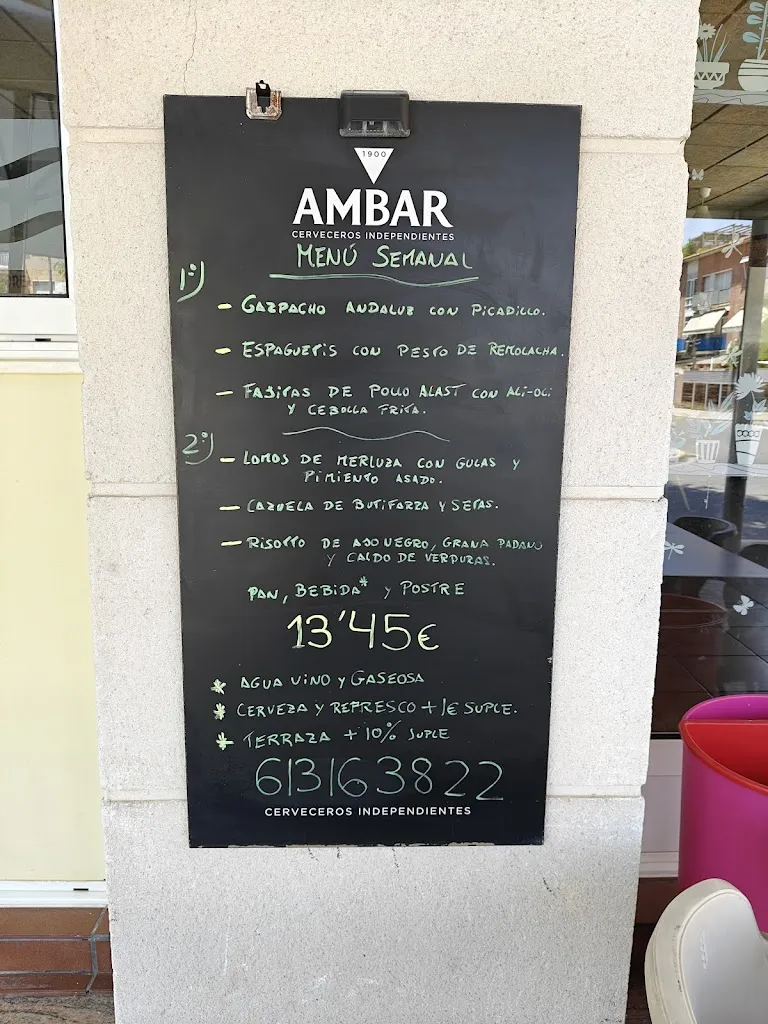 1900
AMBAR
CERVECEROS INDEPENDIENTES
MENÚ SEMANAL
1º)
- GAZPACHO ANDALUZ CON PICADILLO.
- ESPAGUETIS CON PESTO DE REMOLACHA.
- FAJITAS DE POLLO ALAST CON ALI-OLI
Y CEBOLLA FRITA.
2º)
- LOMOS DE MERLUZA CON GULAS Y
PIMIENTO ASADO.
- CAZUELA DE BUTIFARRA Y SETAS.
- RISOTTO DE AJO NEGRO, GRANA PADANO
Y CALDO DE VERDURAS.
PAN, BEBIDA* Y POSTRE
13'45€
* AGUA VINO Y GASEOSA
* CERVEZA Y REFRESCO + 1€ SUPLE.
* TERRAZA + 10% SUPLE
613163822
CERVECEROS INDEPENDIENTES